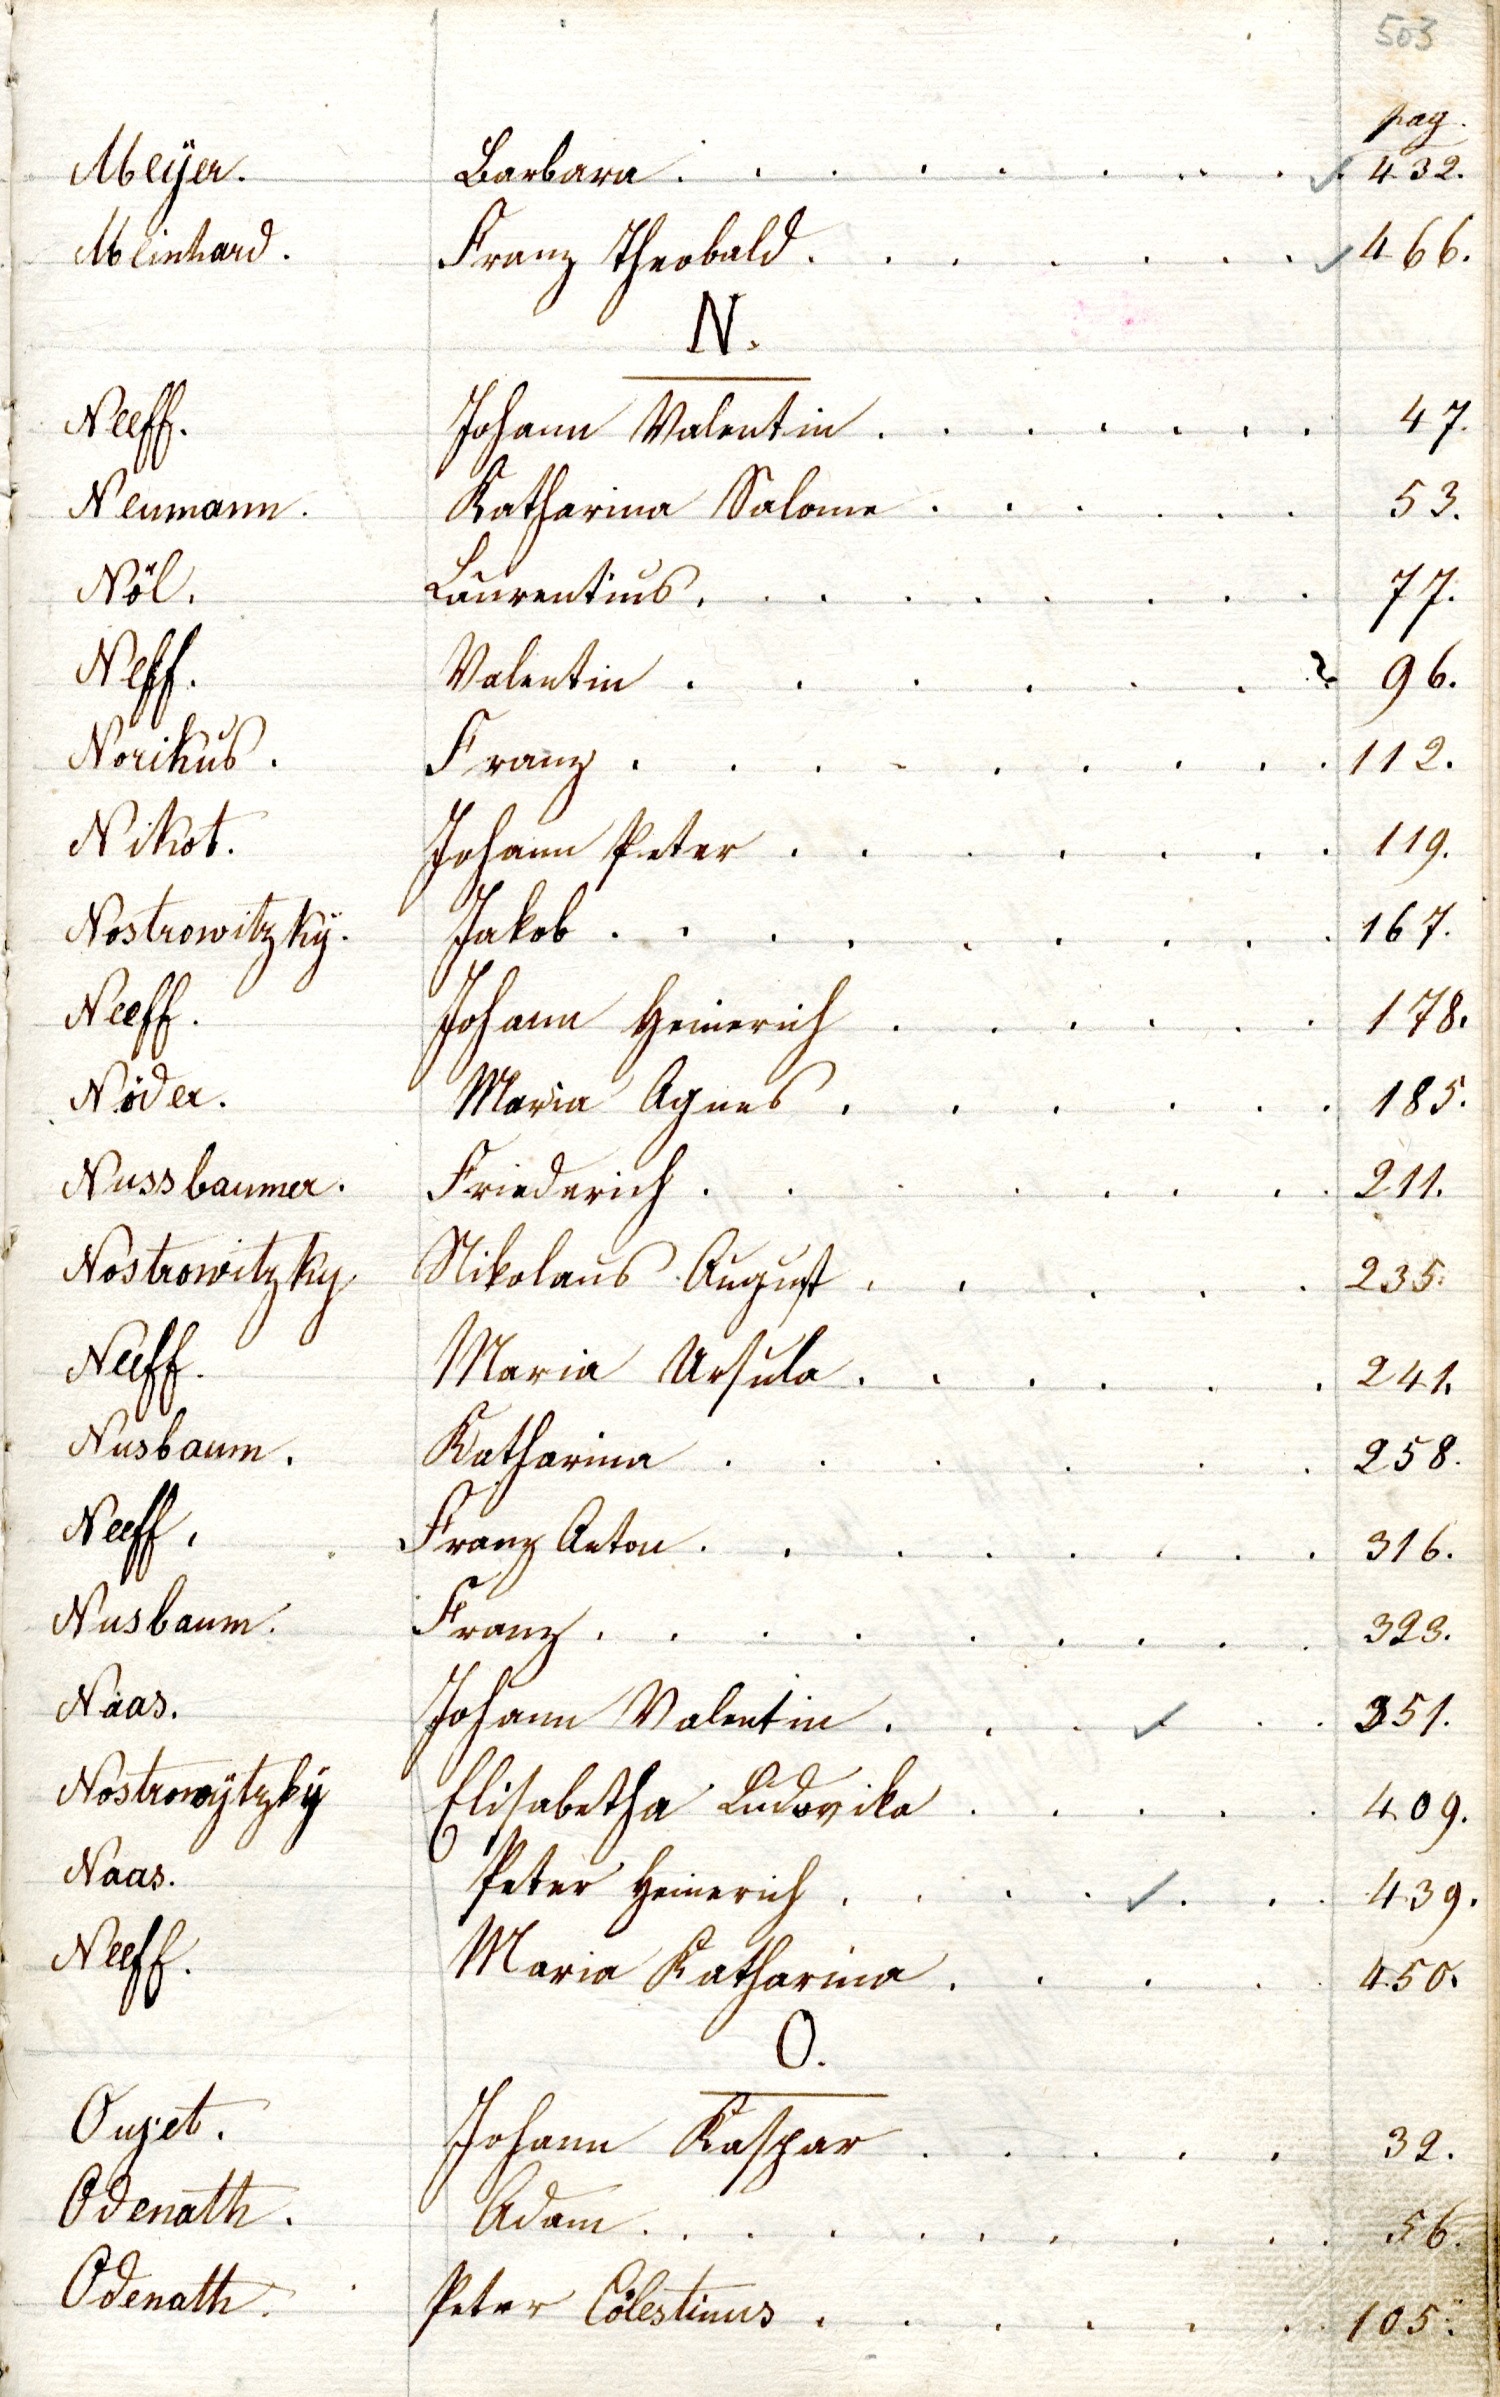 503
pag.
Meÿer. Barbara . . . . . . . . ✓ 432.
Meinhard. Franz Theobald . . . . . . . ✓ 466.
N.
Neeff. Johann Valentin . . . . . . . 47.
Neumann. Katharina Salome . . . . . . 53.
Nöl. Laurentius . . . . . . . . 77.
Neff. Valentin . . . . . . ? 96.
Norikus. Franz . . . . . . . . . 112.
Nikot. Johann Peter . . . . . . . 119.
Nostrowitzkÿ. Jakob . . . . . . . . . 167.
Neeff. Johann Heinerich . . . . . . 178.
Nöder. Maria Agnes . . . . . . 185.
Nussbaumer. Friederich . . . . . . . . 211.
Nostrowitzky Nikolaus August . . . . . 235.
Neeff. Maria Ursula . . . . . . 241.
Nusbaum. Katharina . . . . . . 258.
Neeff. Franz Anton . . . . . . . . 316.
Nusbaum. Franz . . . . . . . . . 323.
Naas. Johann Valentin . . . ✓ . . 351.
Nostrowÿtzkÿ Elisabetha Ludovika . . . . . 409.
Naas. Peter Heinerich . . . . ✓ . . . 439.
Neeff. Maria Katharina . . . . . 450.
O.
Oujet. Johann Kaspar . . . . . 32.
Odenath. Adam . . . . . . . . . 56.
Odenath. Peter Cölestinus . . . . . . 105.